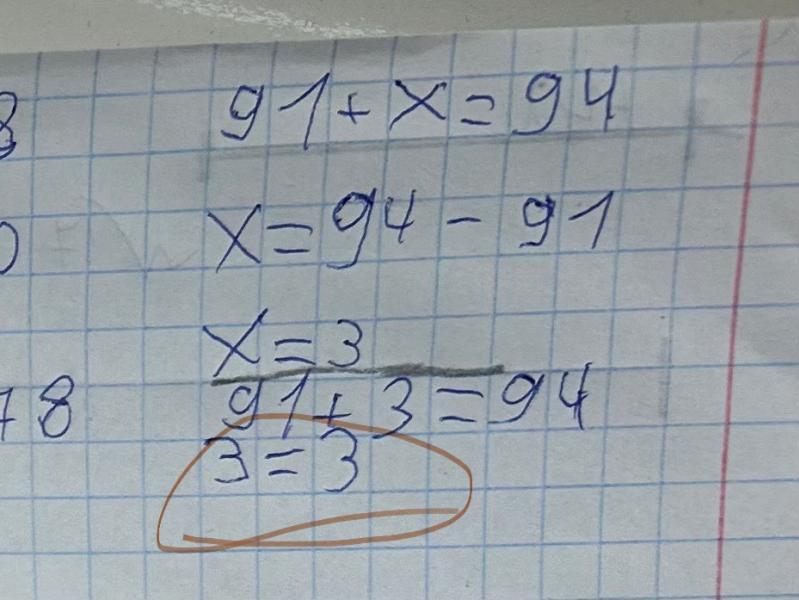 8
91+x=94
0
x=94-91
x=3
78
91+3=94
3=3